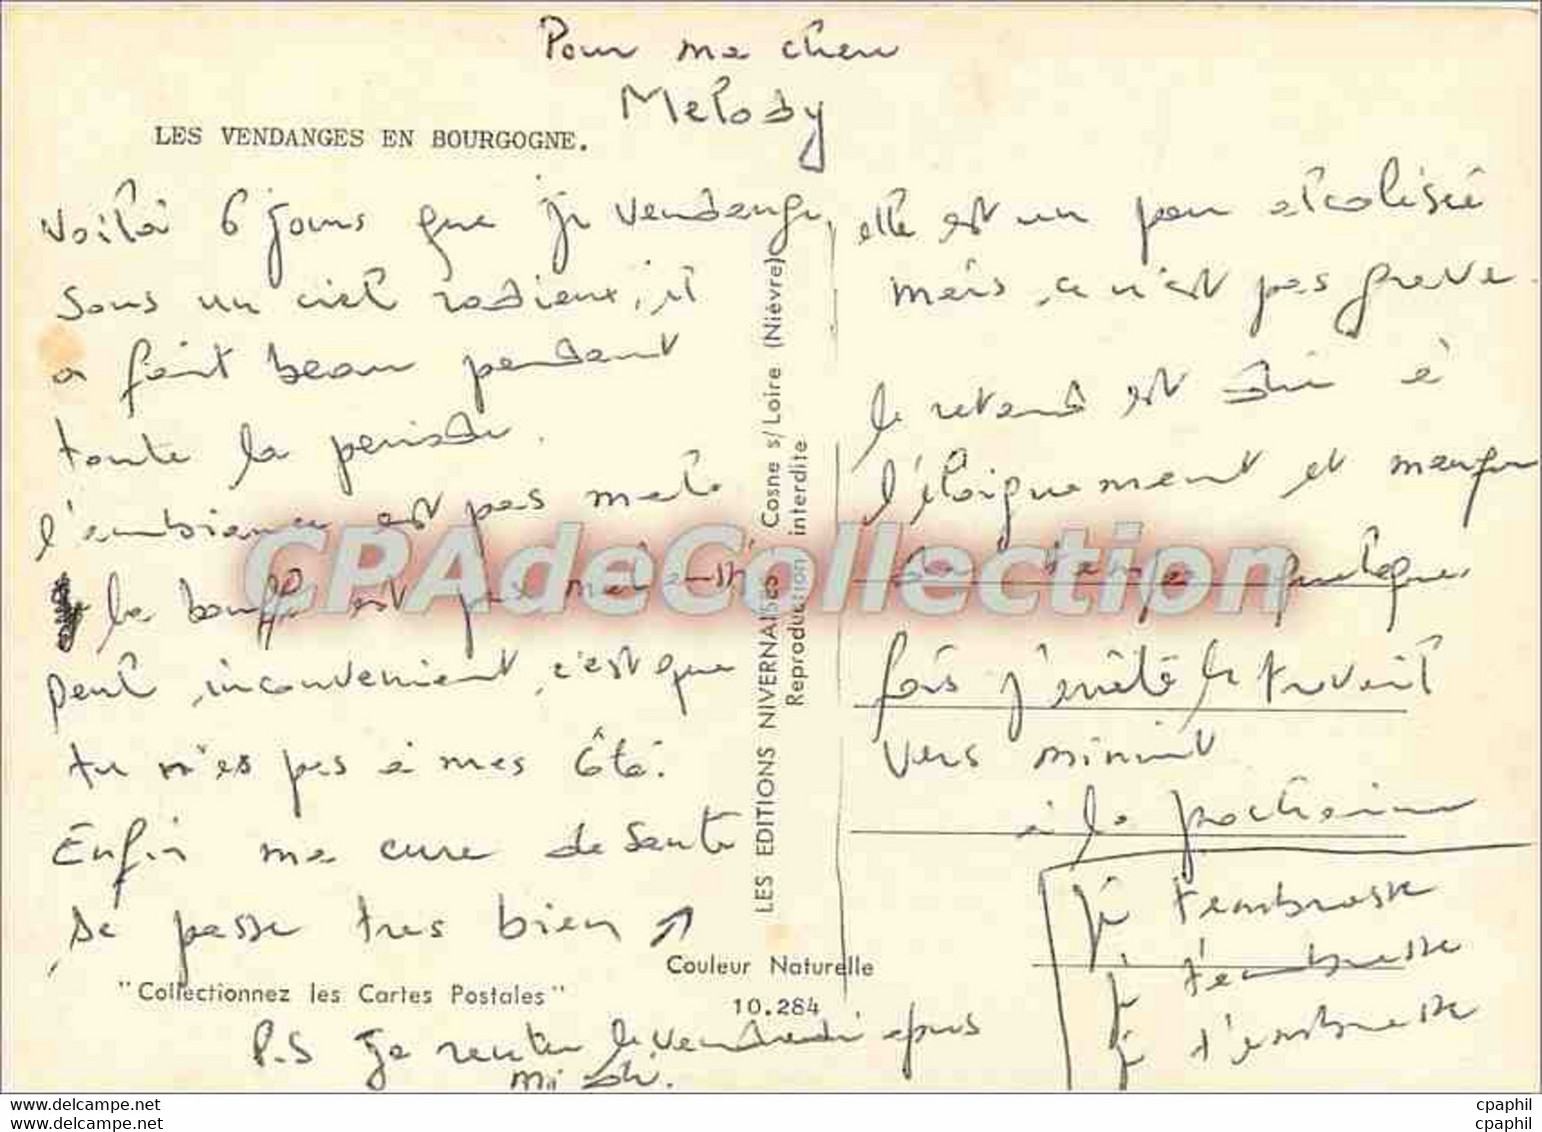 Pour ma cheri
Melody
LES VENDANGES EN BOURGOGNE.
Voilà 6 jours que je vendange
sous un ciel radieux, il
a fait beau pendant
toute la periode.
l'ambiance est pas mal
la bouffe est pas mal
petit inconvenient, c'est que
tu n'es pas à mes côté.
Enfin ma cure de santé
se passe tres bien
elle est un peu alcolisée
mais ça n'est pas grave.
le retard est dû à
l'éloignement et manque
de temps quelques
fois j'arrête le travail
vers minuit
à la prochaine
je t'embrasse
je t'embrasse
je t'embrasse
P.S Je rentre le vendredi apres
midi.
LES EDITIONS NIVERNAISES Cosne s/Loire (Nièvre)
Reproduction interdite
Couleur Naturelle
10.284
"Collectionnez les Cartes Postales"
CPAdeCollection
delcampe.net
cpaphil
cpaphil